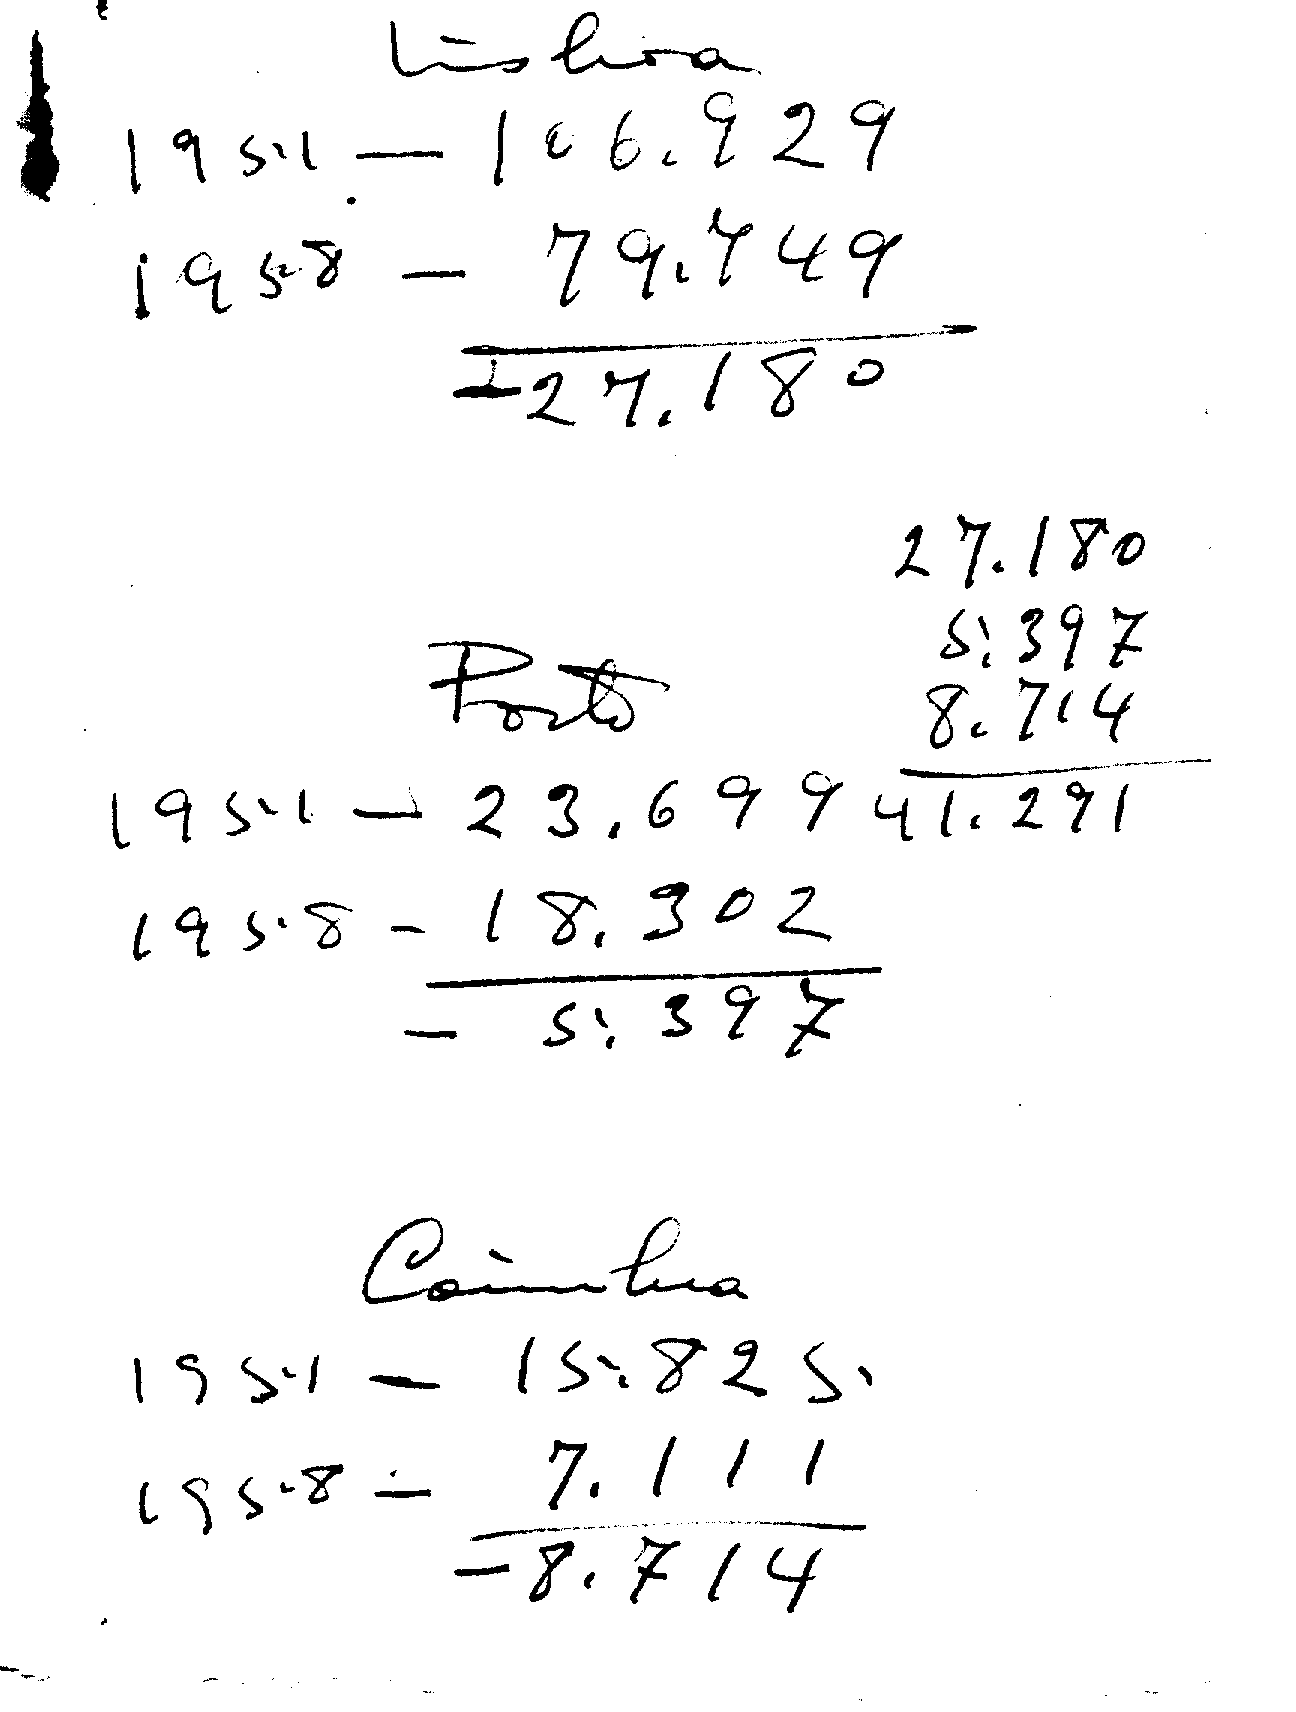 Lisboa
1951 — 106.929
1958 — 79.749
-27.180
27.180
5.397
8.714
41.291
Porto
1951 — 23.699
1958 - 18.302
- 5.397
Coimbra
1951 — 15.825
1958 — 7.111
-8.714